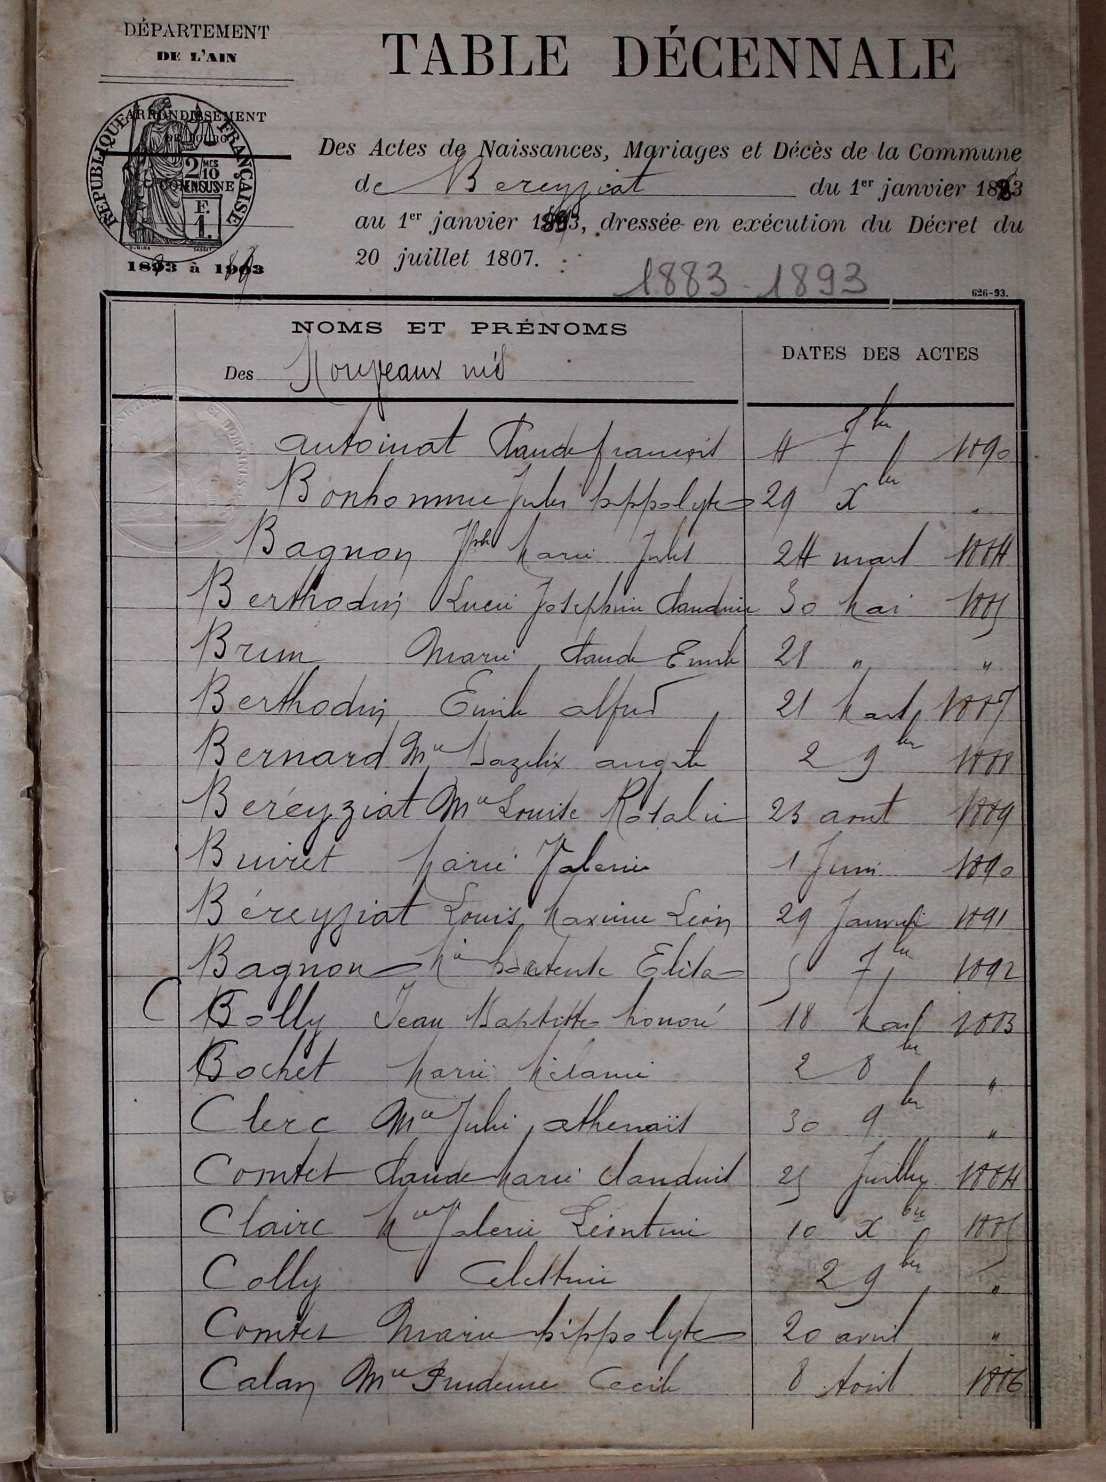 DÉPARTEMENT
DE L'AIN
ARRONDISSEMENT
RÉPUBLIQUE FRANÇAISE
2/10 MES
EN SUS
F.
1.
1883 à 1903
TABLE DÉCENNALE
Des Actes de Naissances, Mariages et Décès de la Commune
de Bereyziat du 1er janvier 1883
au 1er janvier 1893, dressée en exécution du Décret du
20 juillet 1807.
1883-1893
626-93.
NOMS ET PRÉNOMS
Des Nouveaux nés
DATES DES ACTES
antoinat Claude françois 4 7bre 1890
Bonhomme Jules hippolyte 29 Xbre
Bagnon Jph Marie Jules 24 mars 1884
Berthodin Lucie Joséphine Claudine 30 Mai 1885
Brun Marie Claude Emile 28 " "
Berthodin Emile alfred 21 Mars 1887
Bernard Mie 2 9bre 1888
Beréyziat Mie Louise Rosalie 23 aout 1889
Buiret Marie Valerie 1 Juin 1890
Béreyziat Louis Maxime Léon 29 Janvier 1891
Bagnon Mie hortense Elisa 5 7bre 1892
C Colly Jean Baptiste honoré 18 Mars 1883
Bochet Marie Mélanie 2 8bre "
Clerc Mie Julie athenaïs 30 9bre "
Comtet Claude Marie Claudius 25 Juillet 1884
Claire Mie Valerie Léontine 10 Xbre 1885
Colly Celestine 2 9bre "
Comtet Marie hippolyte 20 avril "
Calan Mie Prudence Cecile 8 Avril 1886